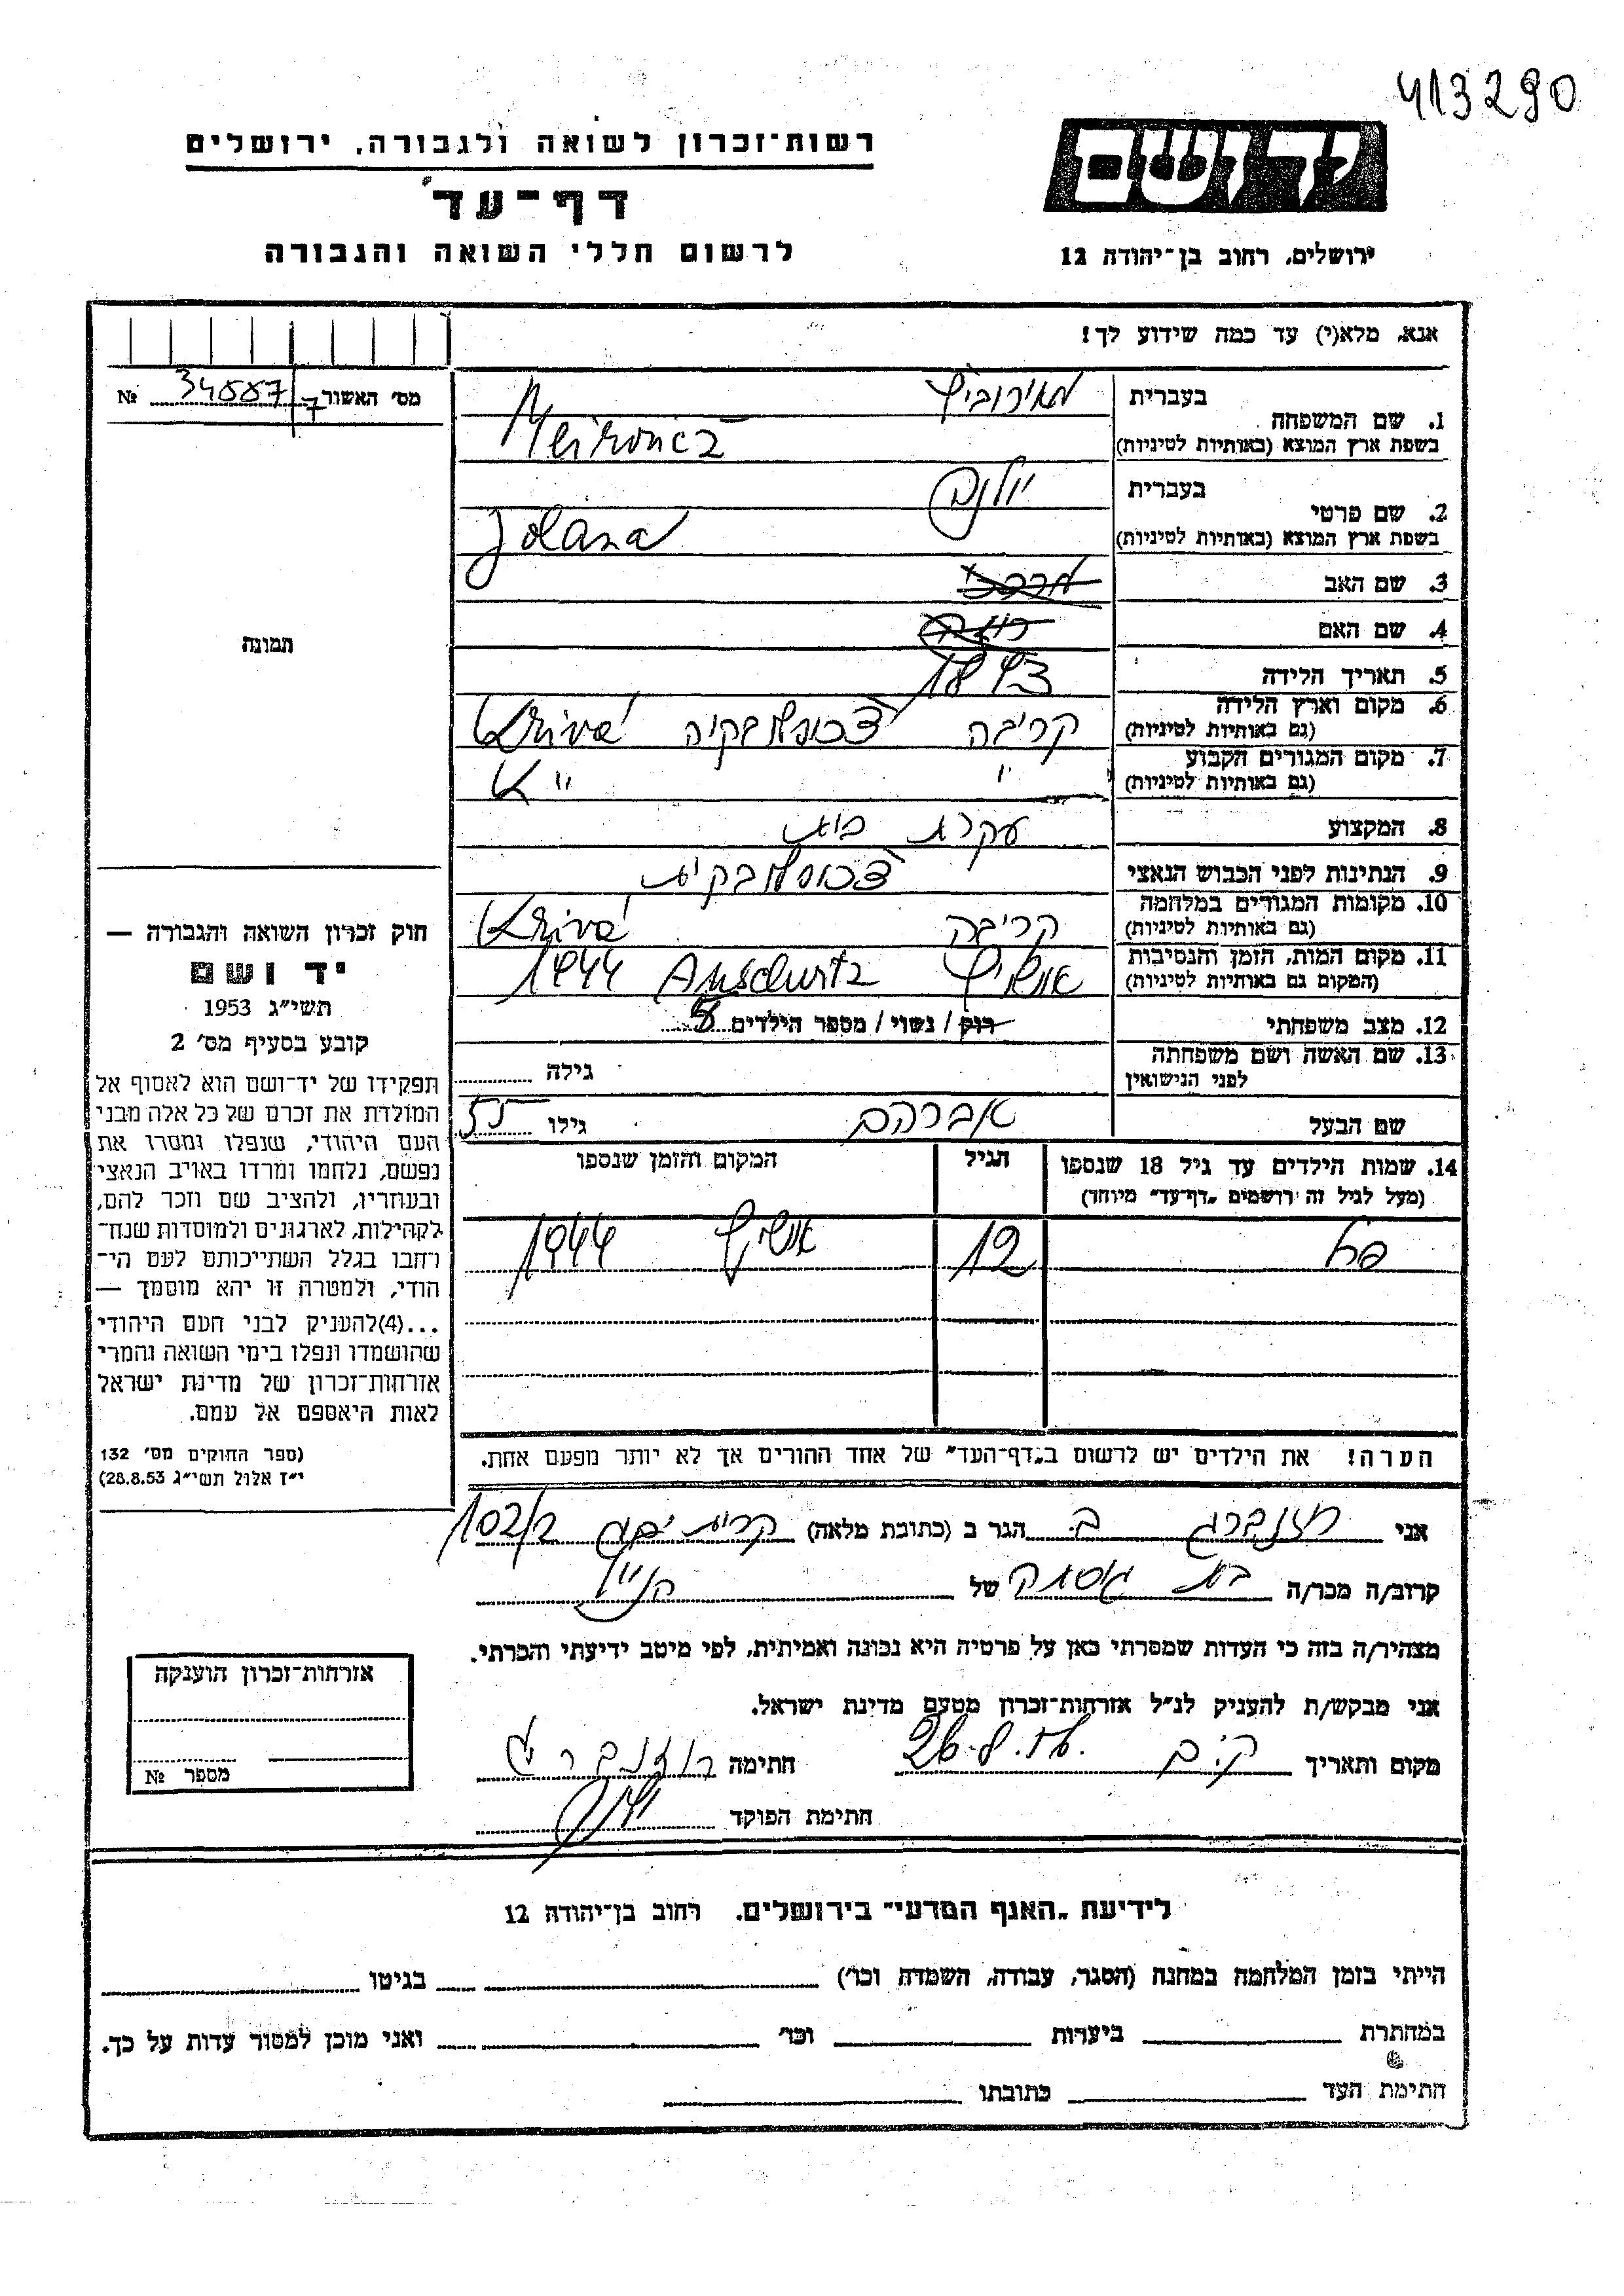 413290
רשות־זכרון לשואה ולגבורה, ירושלים
דף־עד
לרשום חללי השואה והגבורה
יד ושם
ירושלים, רחוב בן־יהודה 12
אנא, מלא(י) עד כמה שידוע לך!
מס׳ האשור 34887/7 №
1. שם המשפחה
בעברית מאירוביץ
בשפת ארץ המוצא (באותיות לטיניות) Meirovicz
2. שם פרטי
בעברית יולנה
בשפת ארץ המוצא (באותיות לטיניות) Jolana
3. שם האב
4. שם האם
5. תאריך הלידה
6. מקום וארץ הלידה
(גם באותיות לטיניות) קריבה צכוסלובקיה Krivá
7. מקום המגורים הקבוע
(גם באותיות לטיניות) " " K
8. המקצוע עקרת בית
9. הנתינות לפני הכבוש הנאצי צכוסלובקית
10. מקומות המגורים במלחמה
(גם באותיות לטיניות) קריבה Krivá
11. מקום המות, הזמן והנסיבות
(המקום גם באותיות לטיניות) אושויץ Auschwitz 1944
12. מצב משפחתי רוק / נשוי / מספר הילדים
13. שם האשה ושם משפחתה
לפני הנישואין גילה
שם הבעל אברהם גילו 55
14. שמות הילדים עד גיל 18 שנספו
(מעל לגיל זה רושמים „דף־עד״ מיוחד)
הגיל
המקום והזמן שנספו
12 אושויץ 1944
הערה! את הילדים יש לרשום ב„דף־העד״ של אחד ההורים אך לא יותר מפעם אחת.
תמונה
חוק זכרון השואה והגבורה —
יד ושם
תשי״ג 1953
קובע בסעיף מס׳ 2
תפקידו של יד־ושם הוא לאסוף אל
המולדת את זכרם של כל אלה מבני
העם היהודי, שנפלו ומסרו את
נפשם, נלחמו ומרדו באויב הנאצי
ובעוזריו, ולהציב שם וזכר להם,
לקהילות, לארגונים ולמוסדות שנח־
רחבו בגלל השתייכותם לעם הי־
הודי, ולמטרה זו יהא מוסמך —
...(4)להעניק לבני העם היהודי
שהושמדו ונפלו בימי השואה והמרי
אזרחות־זכרון של מדינת ישראל
לאות היאספם אל עמם.
(ספר החוקים מס׳ 132
י״ז אלול תשי״ג 28.8.53)
אני רוזנברג ב. הגר ב (כתובת מלאה) קרית ים 102/2
קרוב/ה מכר/ה בת של הנ״ל
מצהיר/ה בזה כי העדות שמסרתי כאן על פרטיה היא נכונה ואמיתית, לפי מיטב ידיעתי והכרתי.
אני מבקש/ת להעניק לנ״ל אזרחות־זכרון מטעם מדינת ישראל.
מקום ותאריך ק.ים 26.8.56 חתימה רוזנברג
חתימת הפוקד
אזרחות־זכרון הוענקה
מספר №
לידיעת „האגף המדעי״ בירושלים, רחוב בן־יהודה 12
הייתי בזמן המלחמה במחנה (הסגר, עבודה, השמדה וכו׳) בגיטו
במחתרת ביערות וכו׳ ואני מוכן למסור עדות על כך.
חתימת העד כתובתו